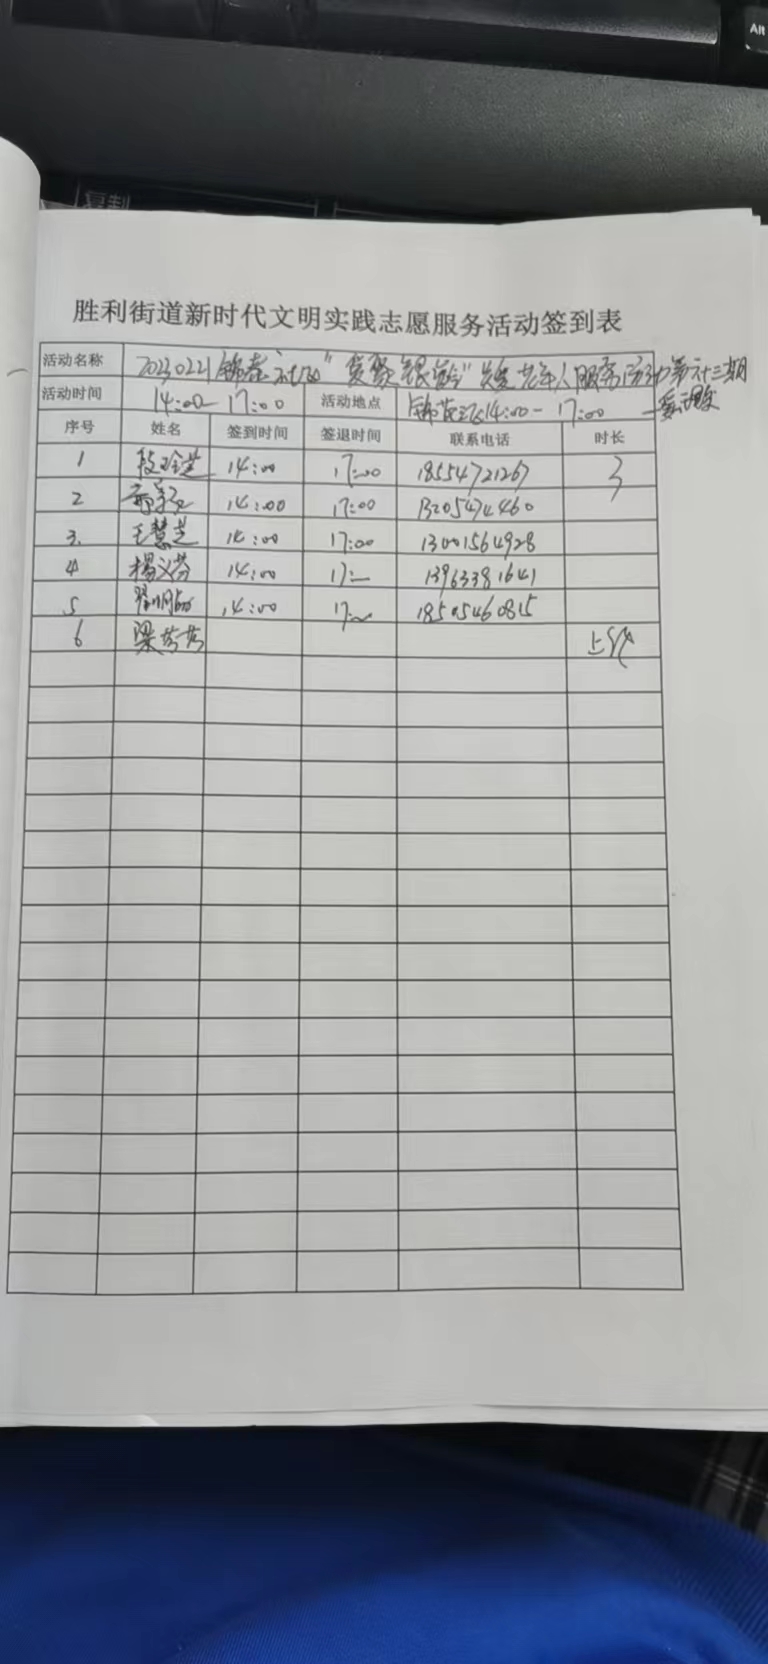 Alt
复制
胜利街道新时代文明实践志愿服务活动签到表
活动名称 20230221锦苑社区"爱聚银龄"关爱老年人服务活动第六十三期
活动时间 14:00-17:00 活动地点 锦苑社区14:00-17:00
序号 姓名 签到时间 签退时间 联系电话 时长
1 14:00 17:00 18554721267 3
2 14:00 17:00 13205474460
3. 王慧芝 14:00 17:00 13001564928
4 杨义芬 14:00 17: 13963381641
5 14:00 17: 18505460815
6 梁芳芳